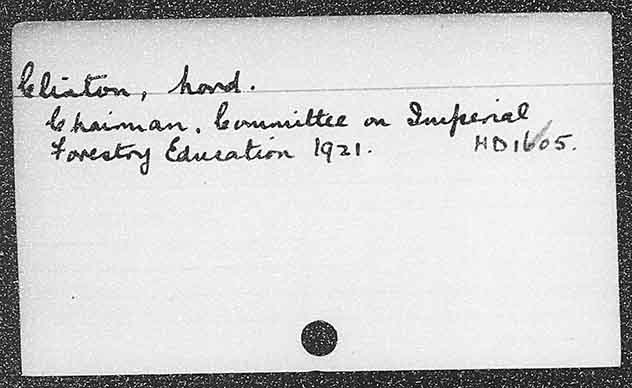 Clinton, Lord.
Chairman. Committee on Imperial
Forestry Education 1921. HD1605.